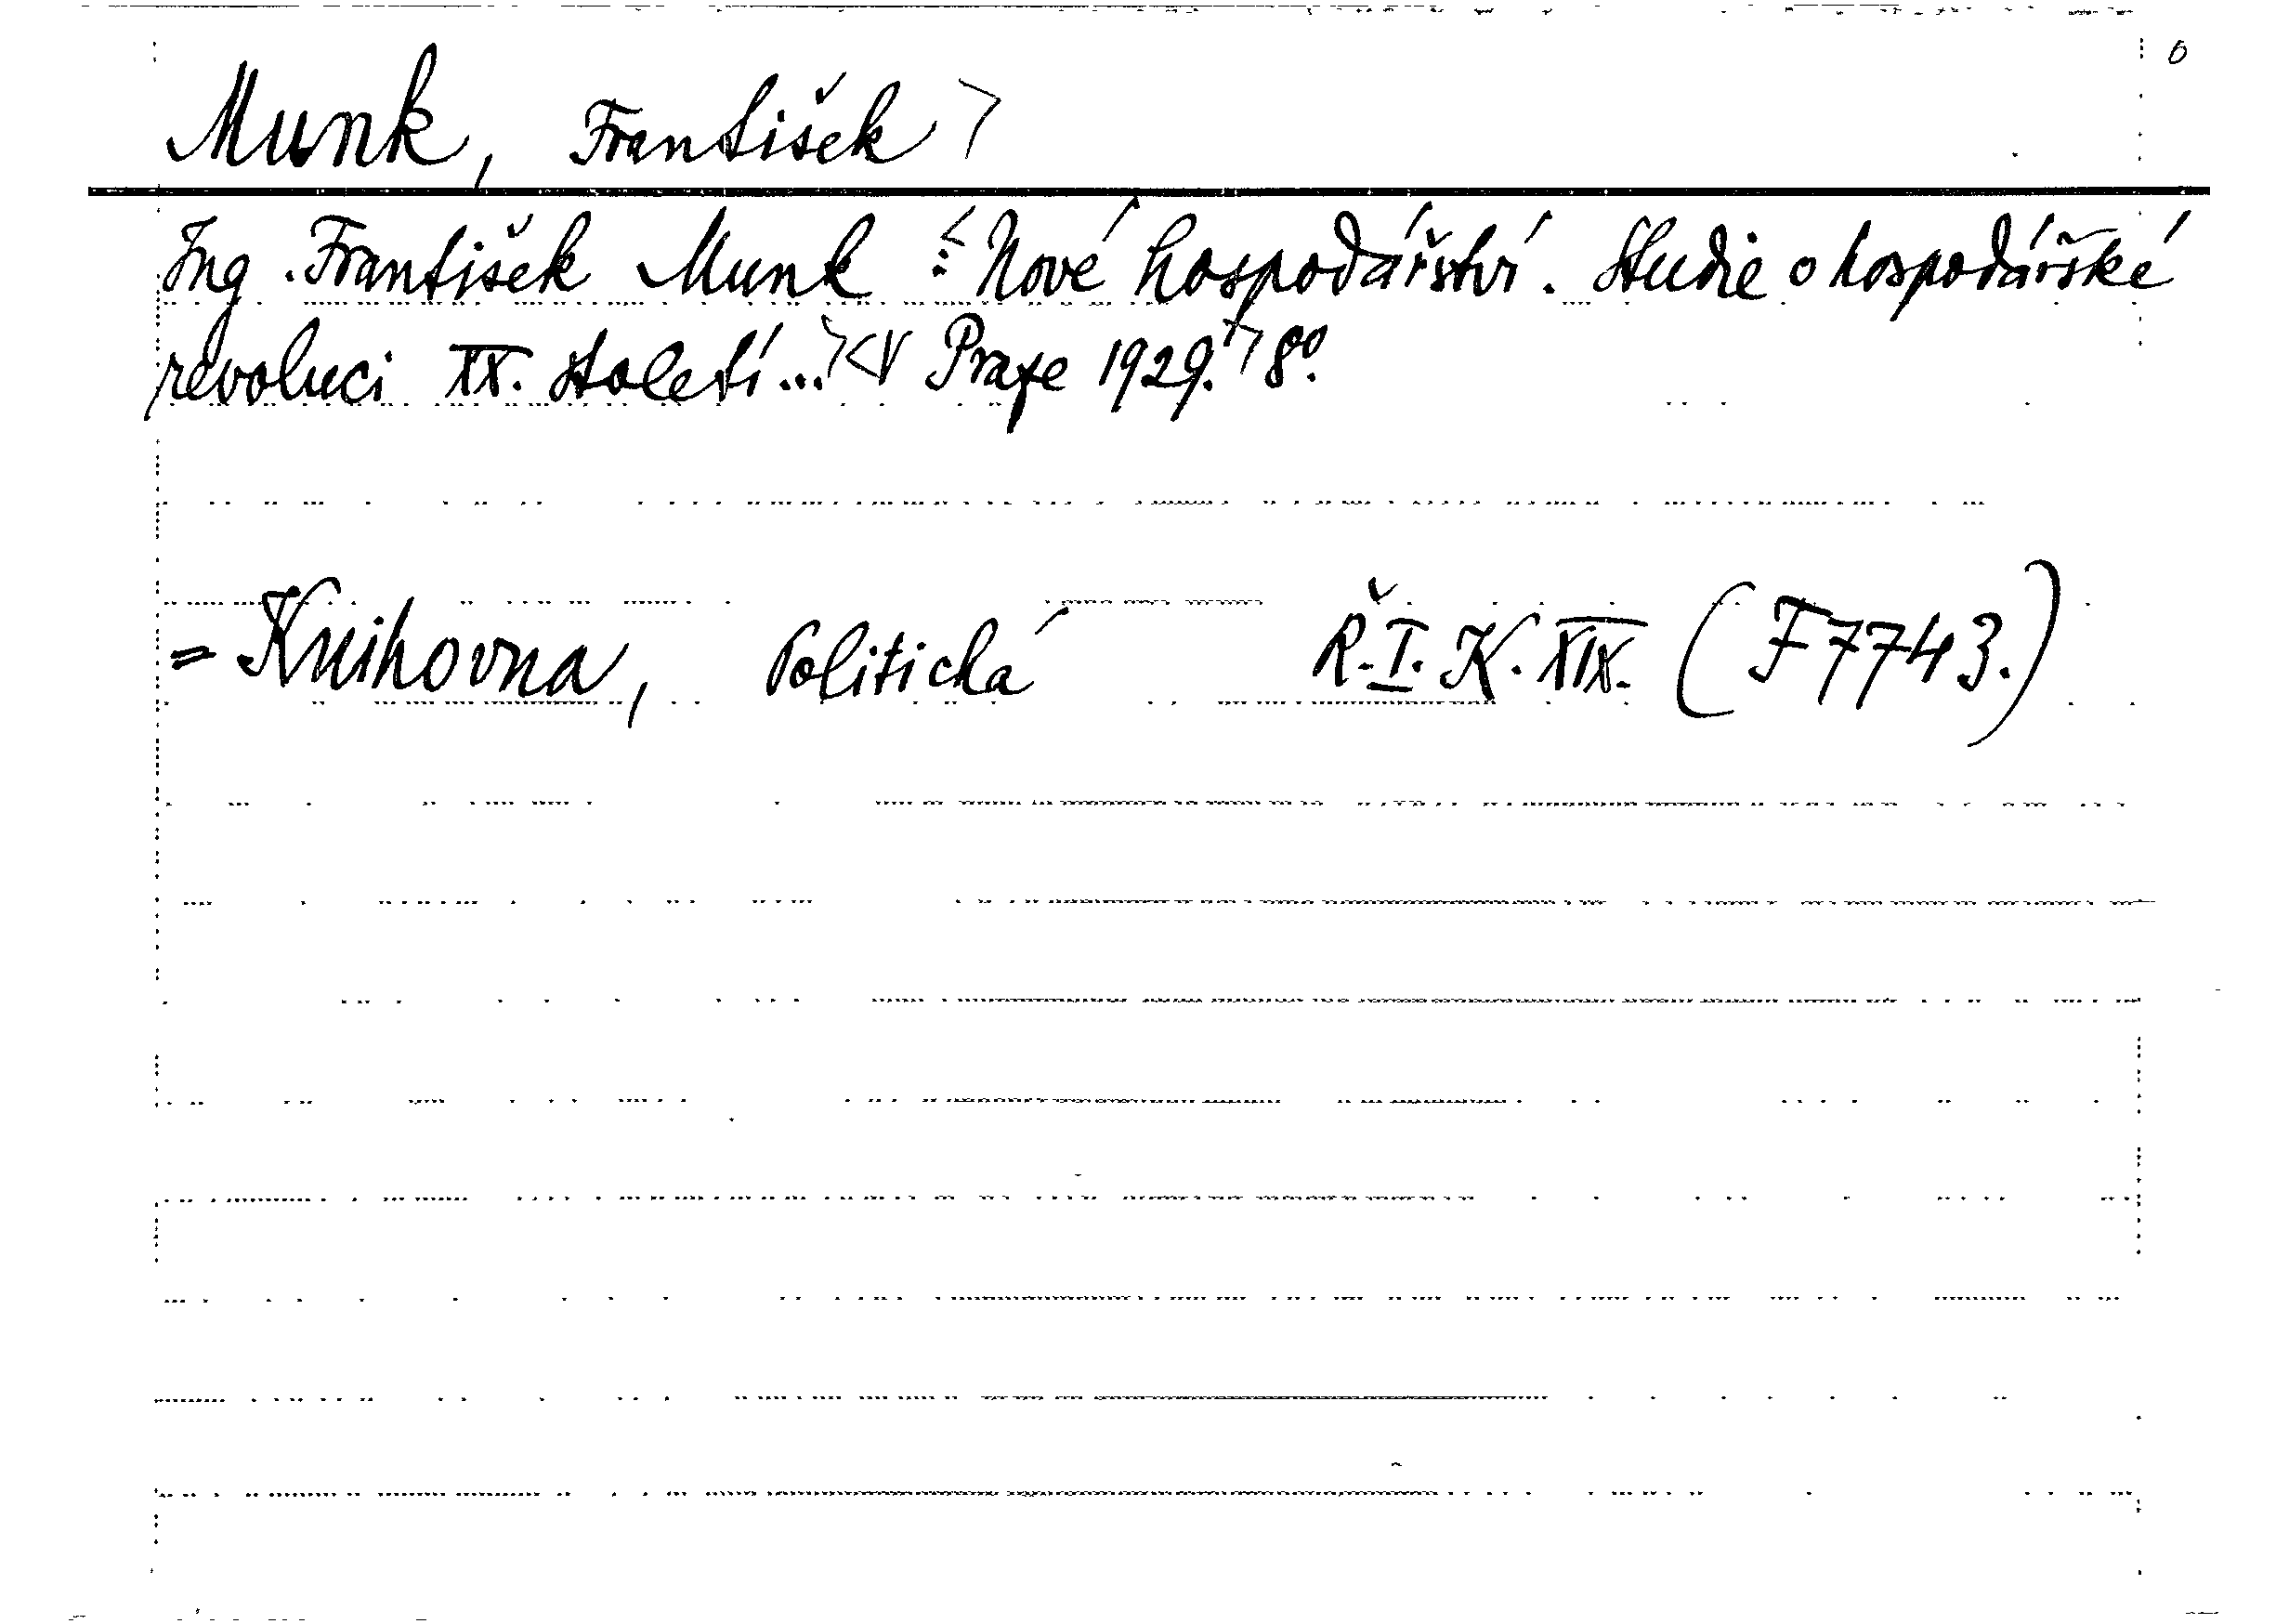 0
Munk, František >
Ing. František Munk <: Nové hospodářství. Studie o hospodářské
revoluci XX. století...> <V Praze 1929.> 8º.
= Knihovna, Politická Ř. I. K. XIX. (F 7743.)